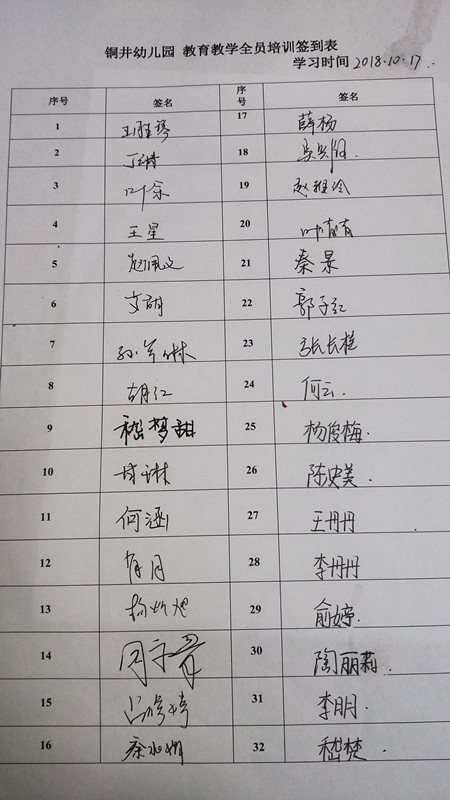 铜井幼儿园 教育教学全员培训签到表
学习时间 2018.10.17
序号 签名 序号 签名
1 17 薛杨
2 丁靖 18
3 叶金 19 赵雅冷
4 王星 20 叶青青
5 赵佩文 21 秦景
6 22 郭子红
7 孙兰林 23 张长桂
8 胡红 24 何云
9 嵇梦甜 25 杨俊梅
10 26 陈史美
11 何涵 27 王丹丹
12 28 李丹丹
13 29 俞婷
14 30 陶丽莉
15 吕修婷 31 李明
16 32 嵇楚